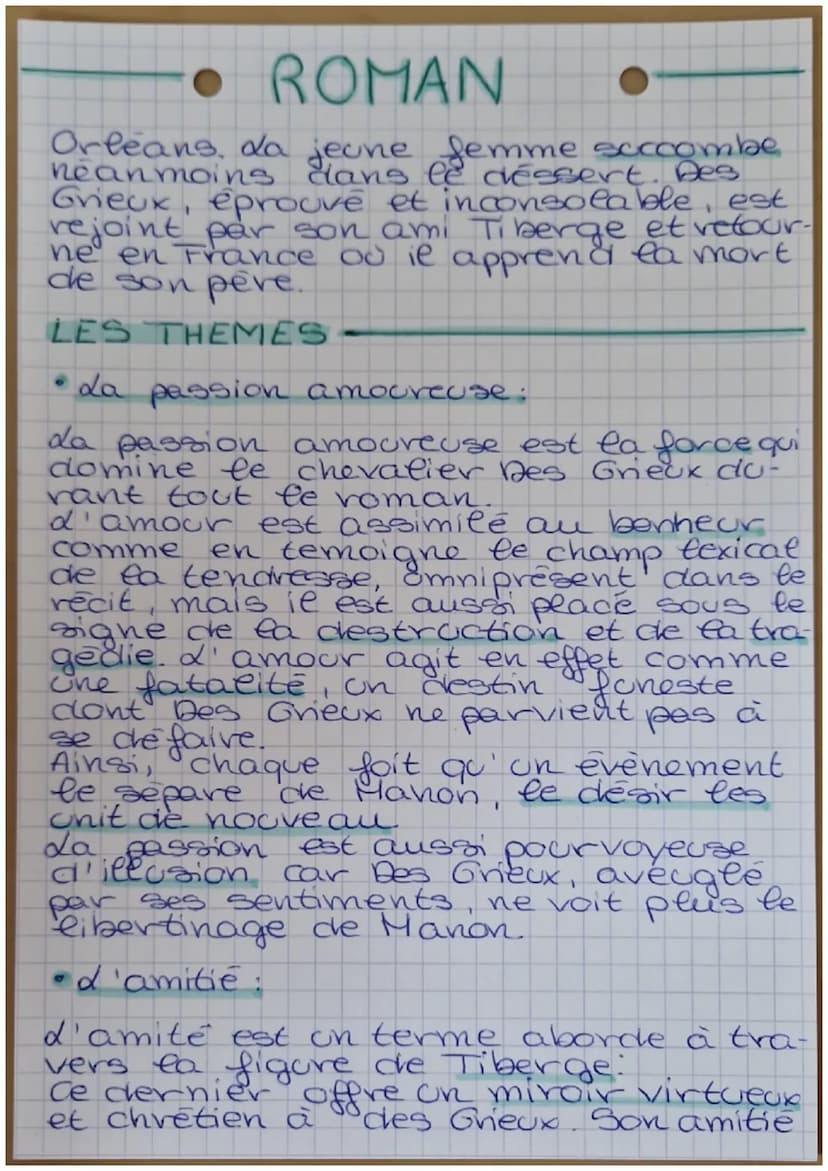 ROMAN
Orléans. La jeune femme succombe
néanmoins dans le déssert. Des
Grieux, éprouvé et inconsolable, est
rejoint par son ami Tiberge et retour-
ne en France où il apprend la mort
de son père.
LES THEMES
• La passion amoureuse :
La passion amoureuse est la force qui
domine le chevalier Des Grieux du-
rant tout le roman.
L'amour est assimilé au bonheur
comme en temoigne le champ lexical
de la tendresse, omniprésent dans le
récit, mais il est aussi placé sous le
signe de la destruction et de la tra-
gédie. L'amour agit en effet comme
une fatalité, un destin funeste
dont Des Grieux ne parvient pas à
se défaire.
Ainsi, chaque foit qu'un évènement
le sépare de Manon, le désir les
unit de nouveau
La passion est aussi pourvoyeuse
d'illusion car Des Grieux, aveuglé
par ses sentiments, ne voit plus le
libertinage de Manon.
• L'amitié :
L'amité est un terme aborde à tra-
vers la figure de Tiberge:
Ce dernier offre un miroir virtueux
et chrétien à des Grieux. Son amitié